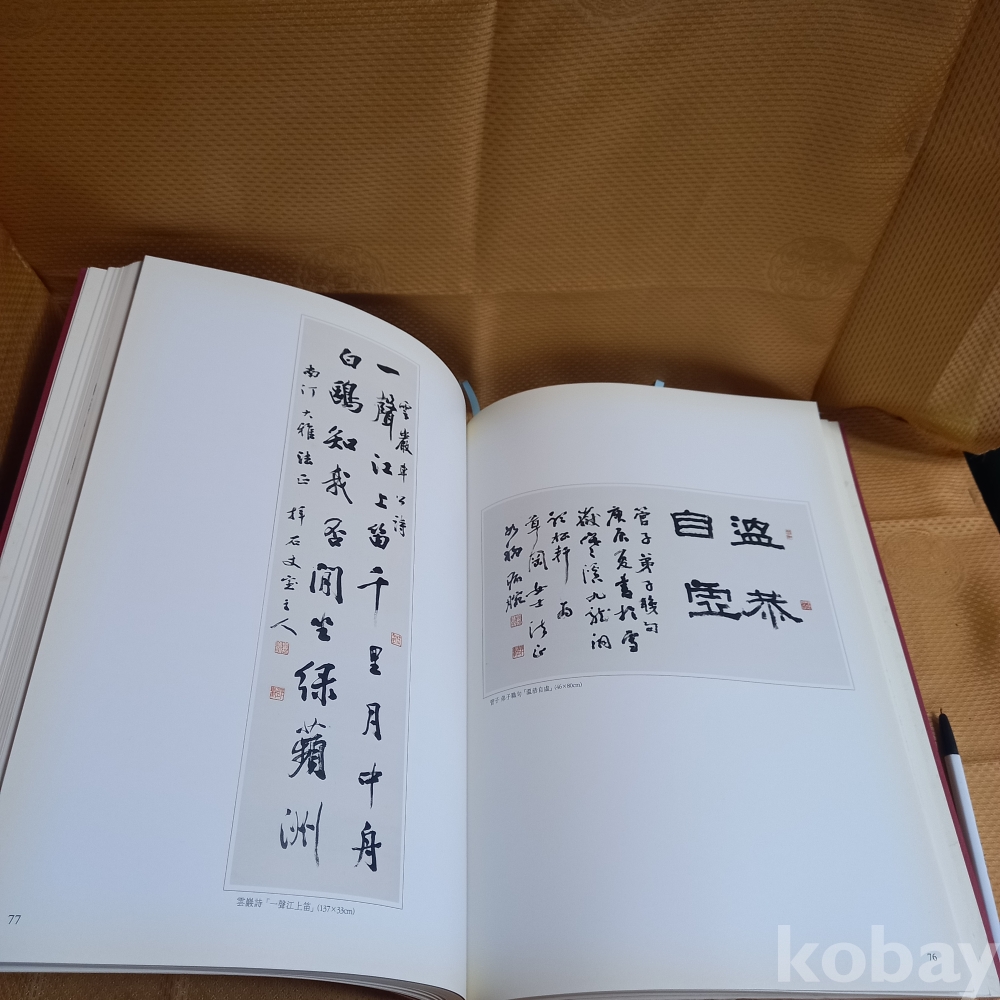 溫恭
自虛
管子弟子職句
庚辰夏書於雪
女士法正
管子 弟子職句「溫恭自虛」(46×80cm)
76
雲巖車公詩
一聲江上笛千里月中舟
白鷗知我否閒坐綠蘋洲
南汀大雅法正 拜石文室主人
雲巖詩「一聲江上笛」(137×33cm)
77
kobay